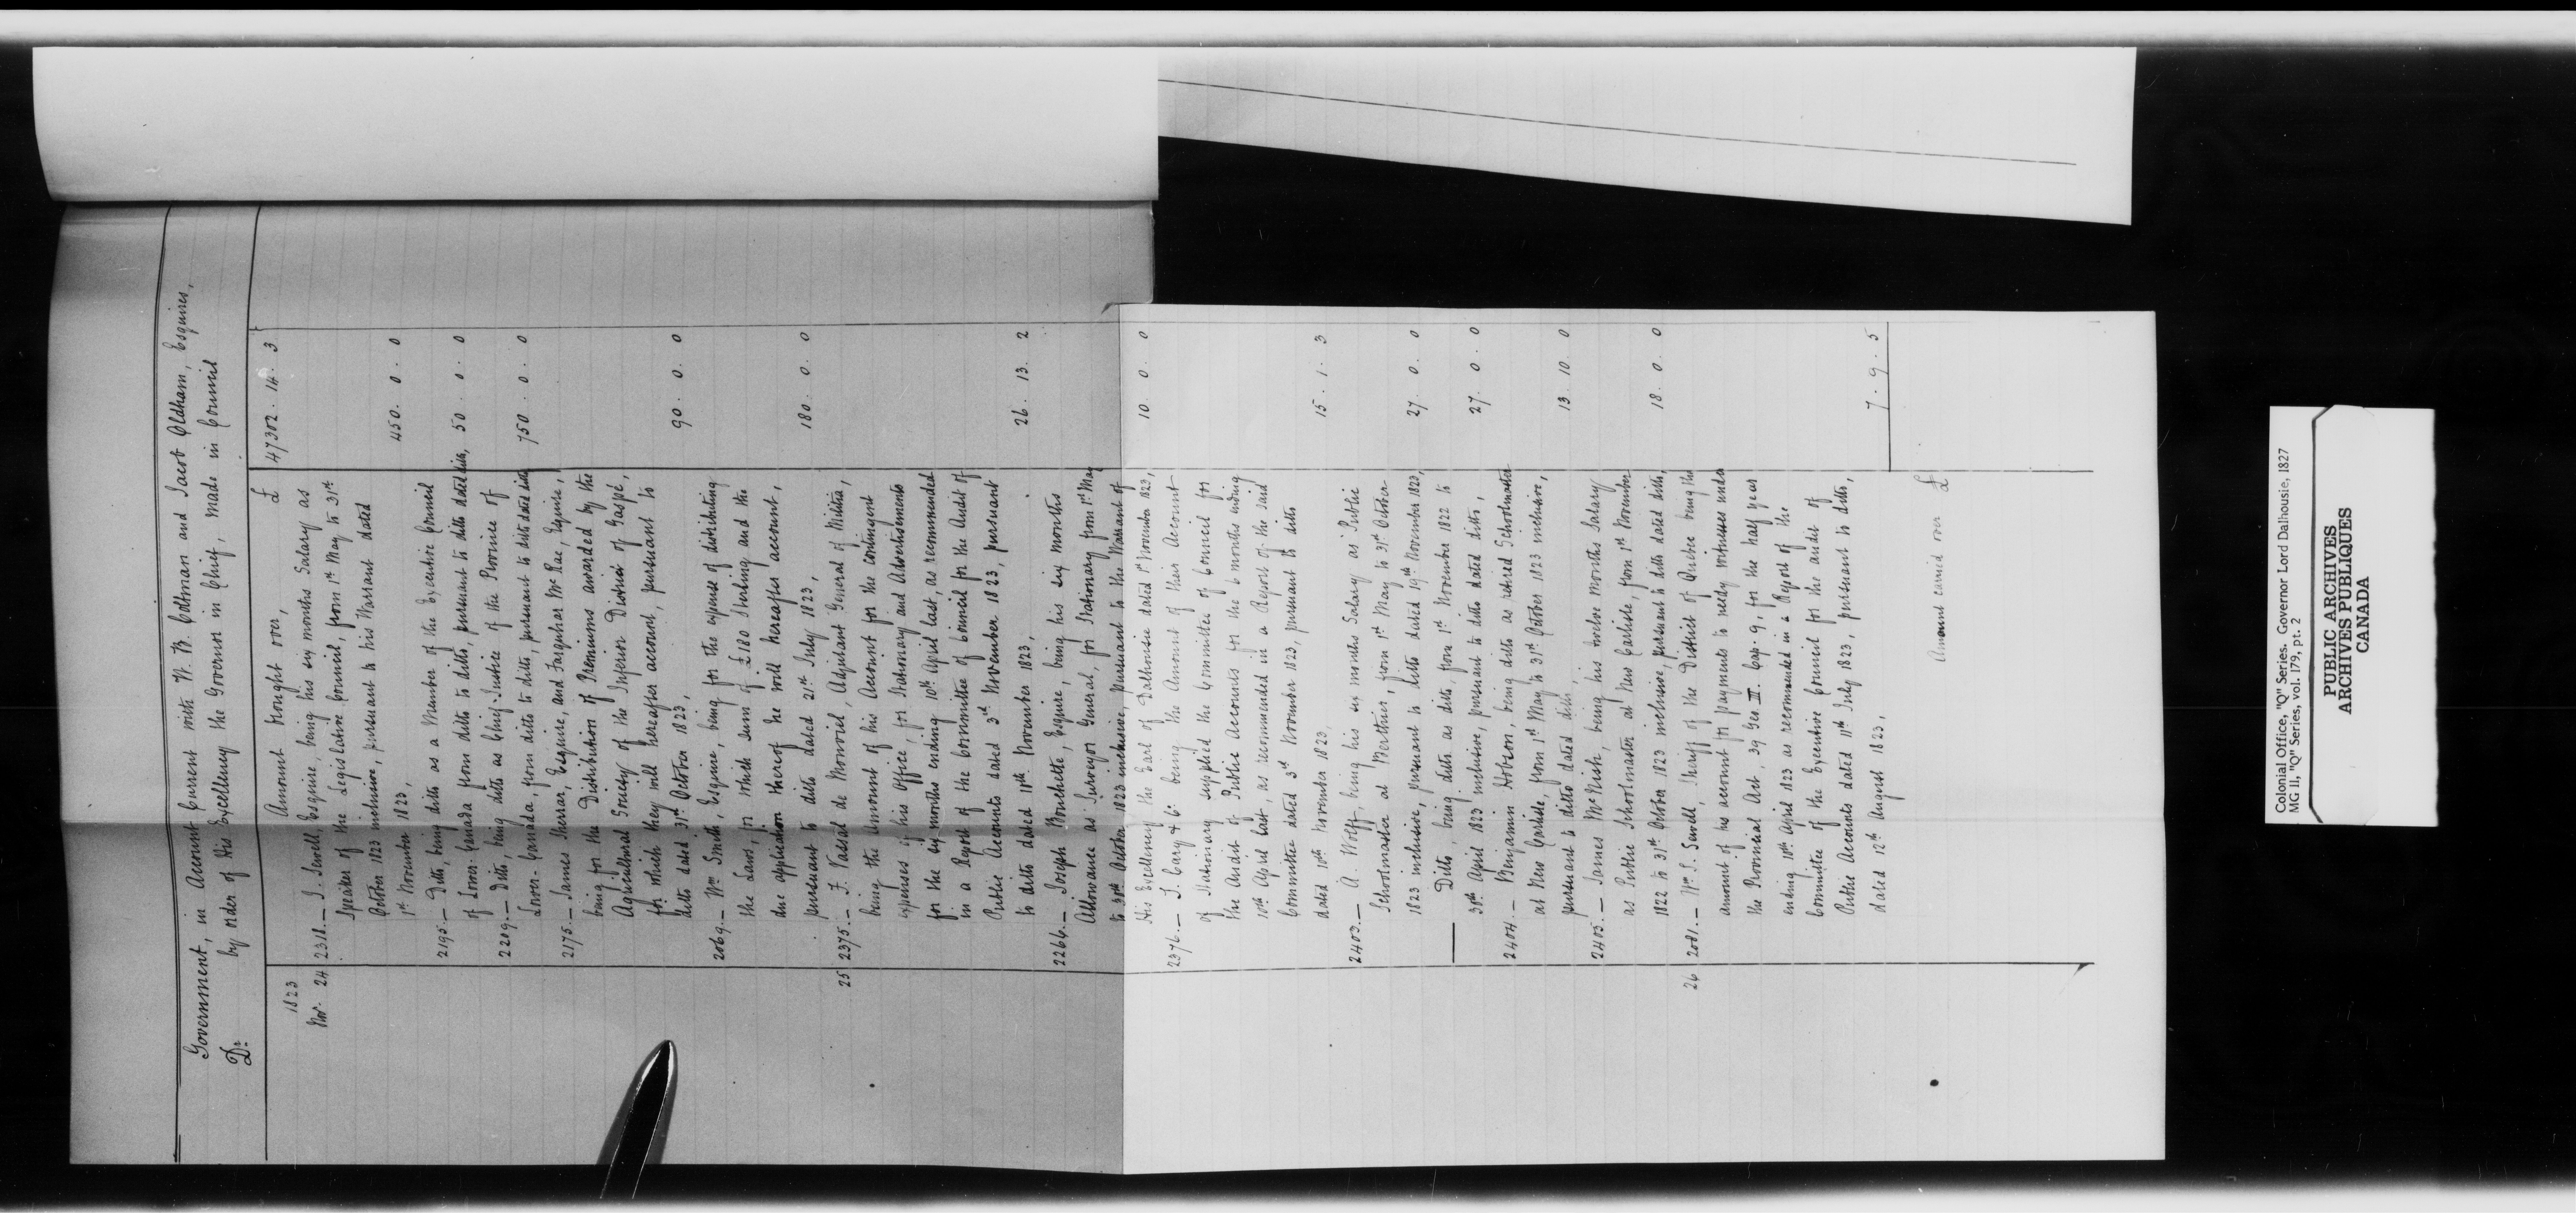 Government, in Account Current with W. B. Coltman and Jacob Oldham, Esquires,
Dr. by order of His Excellency the Governor in Chief, made in Council
Amount brought over, £ 47302. 14. 3
1823
Nov. 24 2318. — J. Sewell, Esquire, being his six months Salary as
Speaker of the Legislative Council, from 1st May to 31st
October 1823 inclusive, pursuant to his Warrant dated
1st November 1823, 450. 0. 0
2195. — Ditto, being ditto as a Member of the Executive Council
of Lower-Canada from ditto to ditto, pursuant to ditto dated ditto, 50. 0. 0
2209. — Ditto, being ditto as Chief-Justice of the Province of
Lower-Canada, from ditto to ditto, pursuant to ditto dated ditto 750. 0. 0
2175. — James Sherrar, Esquire, and Farquhar McRae, Esquire,
being for the Distribution of Premiums awarded by the
Agricultural Society of the Inferior District of Gaspé,
for which they will hereafter account, pursuant to
ditto dated 31st October 1823, 90. 0. 0
2069. — Wm Smith, Esquire, being for the expense of distributing
the Laws, for which sum of £180 Sterling and the
due application thereof he will hereafter account,
pursuant to ditto dated 21st July 1823, 180. 0. 0
25 2375. — F. Vassal de Monviel, Adjutant General of Militia,
being the Amount of his Account for the contingent
expenses of his Office, for Stationary and Advertisements
for the six months ending 10th April last, as recommended
in a Report of the Committee of Council for the Audit of
Public Accounts dated 3rd November 1823, pursuant
to ditto dated 18th November 1823, 26. 13. 2
2266. — Joseph Bouchette, Esquire, being his six months
Allowance as Surveyor General, for Stationary from 1st May
to 31st October 1823 inclusive, pursuant to the Warrant of
His Excellency the Earl of Dalhousie dated 1st November 1823, 10. 0. 0
2376. — T. Cary & Co. being the Amount of their Account
of Stationary supplied the Committee of Council for
the Audit of Public Accounts for the 6 months ending
10th April last, as recommended in a Report of the said
Committee dated 3rd November 1823, pursuant to ditto
dated 18th November 1823, 15. 1. 3
2403. — A. Wolff, being his six months Salary as Public
Schoolmaster at Merthier, from 1st May to 31st October
1823 inclusive, pursuant to ditto dated 19th November 1823, 27. 0. 0
— Ditto, being ditto as ditto, from 1st November 1822 to
30th April 1823 inclusive, pursuant to ditto dated ditto, 27. 0. 0
2404. — Benjamin Hobson, being ditto as retired Schoolmaster
at New Carlisle, from 1st May to 31st October 1823 inclusive,
pursuant to ditto dated ditto, 13. 10. 0
2405. — James McNish, being his twelve months Salary
as Public Schoolmaster at New Carlisle, from 1st November
1822 to 31st October 1823 inclusive, pursuant to ditto dated ditto, 18. 0. 0
26 2081. — Wm S. Sewell, Sheriff of the District of Quebec being the
amount of his account for payments to needy witnesses under
the Provincial Act, 39 Geo. III. Cap. 9, for the half year
ending 10th April 1823 as recommended in a Report of the
Committee of the Executive Council for the audit of
Public Accounts dated 11th July 1823, pursuant to ditto,
dated 12th August 1823, 7. 9. 5
Amount carried over £
Colonial Office, "Q" Series. Governor Lord Dalhousie, 1827
MG II, "Q" Series, vol. 179, pt. 2
PUBLIC ARCHIVES
ARCHIVES PUBLIQUES
CANADA